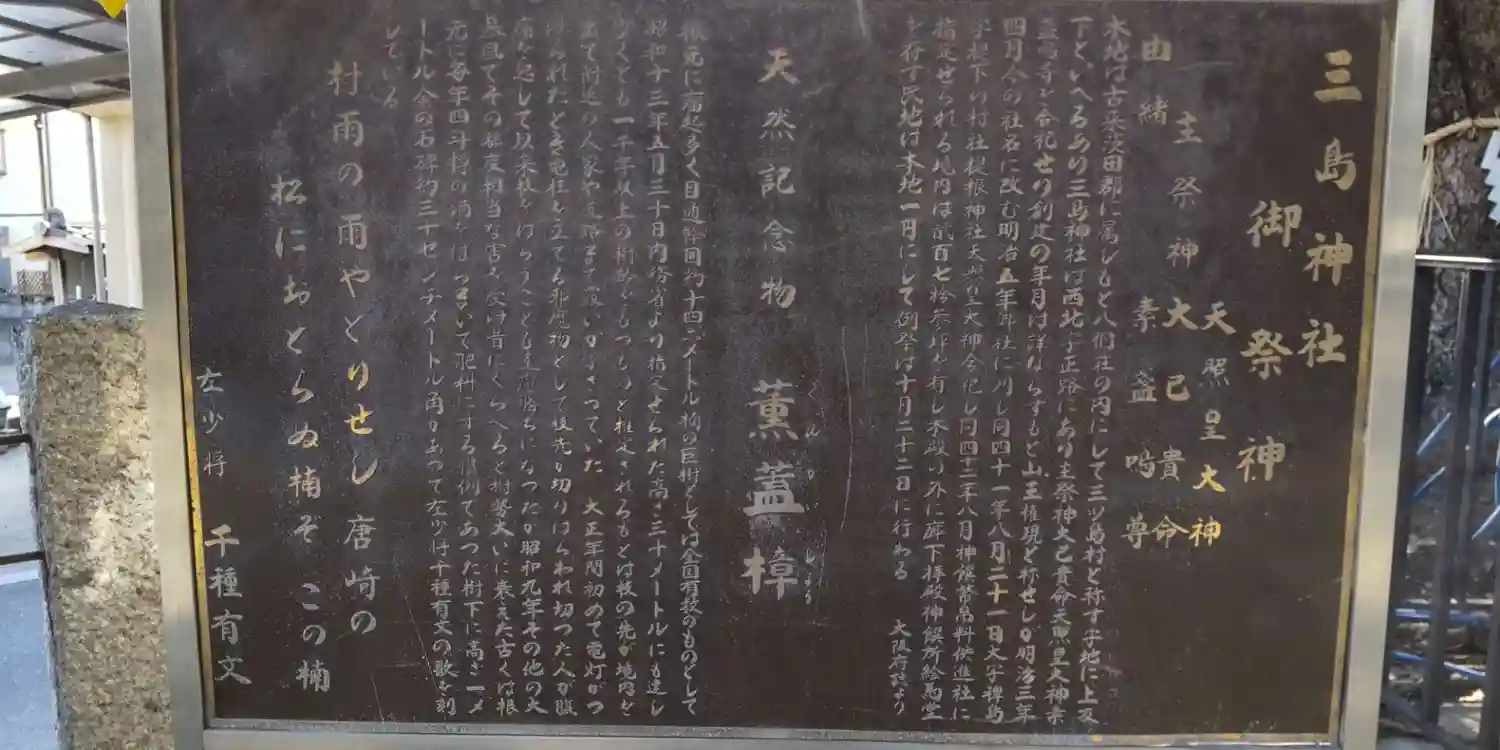 三島神社
御祭神
天照皇大神
大己貴命
素盞嗚尊
主祭神
由緒
本地は古来茨田郡に属しもと八個荘の内にして三ツ島村と称す字地に上反
下といへるあり三島神社は西北字正路にあり主祭神大己貴命天照皇大神素
盞嗚尊を合祀せり創建の年月は詳ならずもと山王権現と称せしを明治三年
四月今の社名に改む明治五年村社に列し同四十一年八月二十一日大字稗島
字堤下の村社堤根神社天照皇大神合祀し同四十二年八月神饌幣帛料供進社に
指定せられる境内は貮百七拾参坪を有し本殿の外に廊下拝殿神饌所絵馬堂
を存す氏地は本地一円にして例祭は十月二十二日に行わる 大阪府誌より
天然記念物 薫蓋樟
くんがいしょう
根元に瘤起多く目通幹囲約十四メートル樟の巨樹としては全国有数のものとして
昭和十三年五月三十日内務省より指定せられた高さ三十メートルにも達し
少くとも一千年以上の樹齢をもつものと推定されるもとは枝の先が境内を
出て附近の人家や道路まで覆いかぶさっていた 大正年間初めて電灯がつ
けられたとき電柱を立てる邪魔物として枝先を切りはらわれ切つた人が腹
痛を起して以来枝をはらうことも差控勝ちになつたが昭和九年その他の大
暴風でその都度相当な害を受け昔にくらべると樹勢大いに衰えた古くは根
元に毎年四斗樽の酒をはつまいて肥料にする慣例であつた樹下に高さ一メ
ートル余の石碑約三十センチメートル角があつて左少将千種有文の歌を刻
している
村雨の雨やどりせし 唐崎の
松におとらぬ楠ぞ この楠
左少将 千種有文